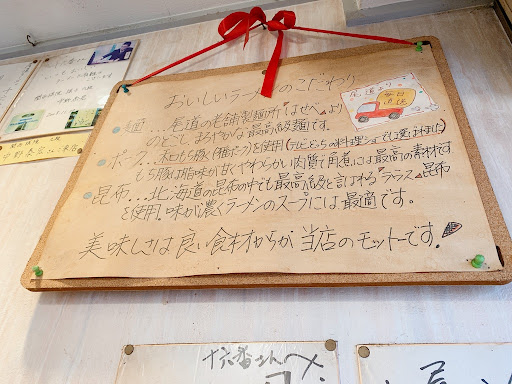 おいしいラーメンのこだわり
尾道より
毎日
直送
麺...尾道の老舗製麺所「はせべ」より
のどごしまろやかな最高級麺です。
ポーク...和もち豚(種ポーク)を使用(テレビどっちの料理ショーでも選ばれました)
もち豚は脂味が甘くやわらかい肉質で角煮には最高の素材です
昆布...北海道の昆布の中でも最高級と言われる"ラウス"昆布
を使用。味が濃くラーメンのスープには最適です。
美味しさは良い食材からが当店のモットーです。
十六番さんへ